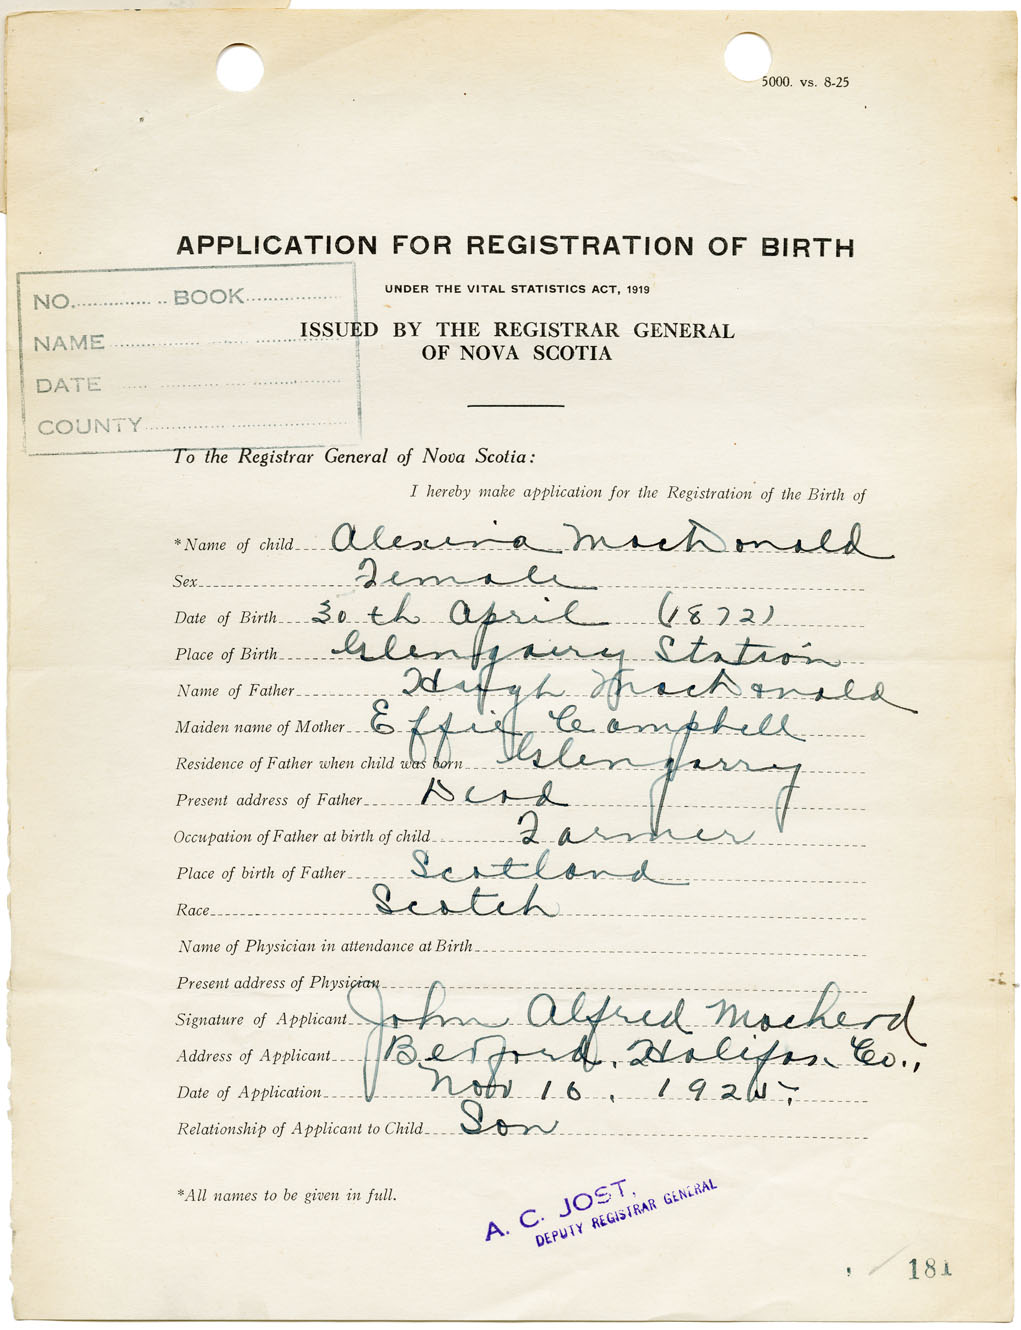 5000. vs. 8-25
APPLICATION FOR REGISTRATION OF BIRTH
UNDER THE VITAL STATISTICS ACT, 1919
ISSUED BY THE REGISTRAR GENERAL
OF NOVA SCOTIA
NO. BOOK
NAME
DATE
COUNTY
To the Registrar General of Nova Scotia:
I hereby make application for the Registration of the Birth of
*Name of child Alexina MacDonald
Sex Female
Date of Birth 30th April (1872)
Place of Birth Glengarry Station
Name of Father Hugh MacDonald
Maiden name of Mother Effie Campbell
Residence of Father when child was born Glengarry
Present address of Father Dead
Occupation of Father at birth of child Farmer
Place of birth of Father Scotland
Race Scotch
Name of Physician in attendance at Birth
Present address of Physician
Signature of Applicant John Alfred
Address of Applicant Bedford, Halifax Co.,
Date of Application Nov 16, 1925.
Relationship of Applicant to Child Son
*All names to be given in full.
A. C. JOST,
DEPUTY REGISTRAR GENERAL
181